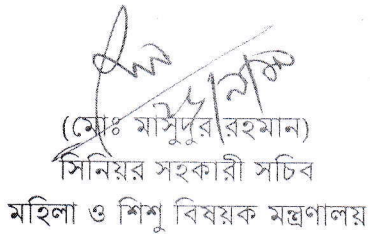 (মোঃ মাসুদুর রহমান)
সিনিয়র সহকারী সচিব
মহিলা ও শিশু বিষয়ক মন্ত্রণালয়